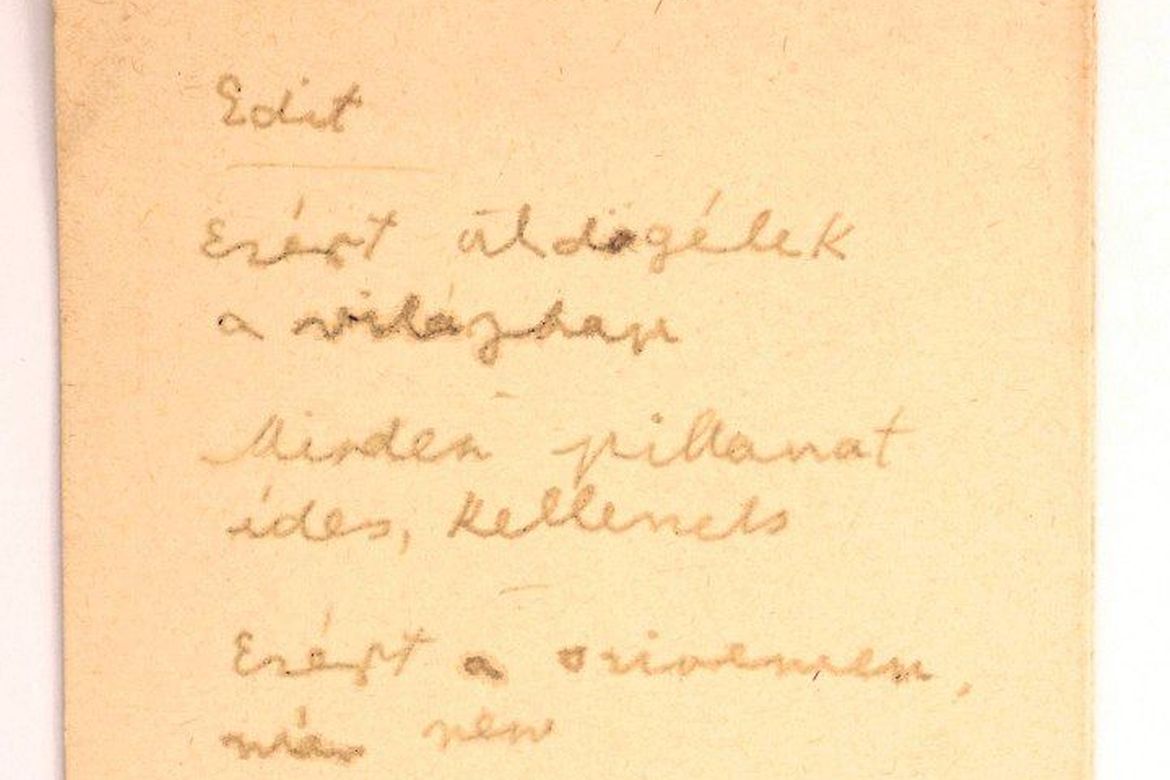 Edit
Ezért üldögélek
a világban
Minden pillanat
édes, kellemes
Ezért a
már nem